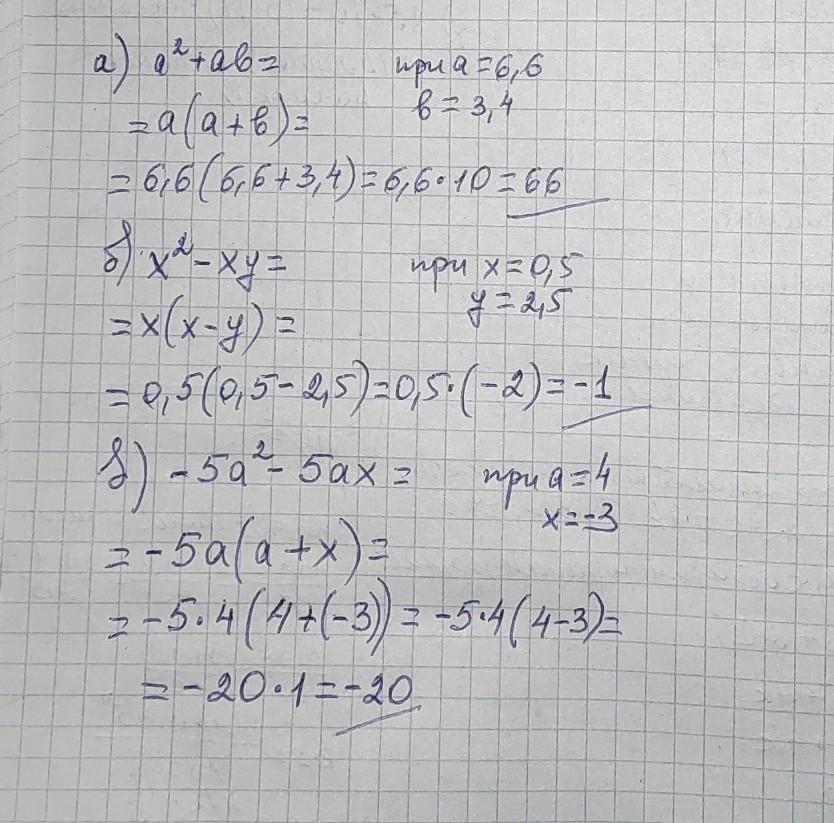 а) a²+ab= при a=6,6
b=3,4
=a(a+b)=
=6,6(6,6+3,4)=6,6·10=66
б) x²-xy= при x=0,5
y=2,5
=x(x-y)=
=0,5(0,5-2,5)=0,5·(-2)=-1
в) -5a²-5ax= при a=4
x=-3
=-5a(a+x)=
=-5·4(4+(-3))=-5·4(4-3)=
=-20·1=-20